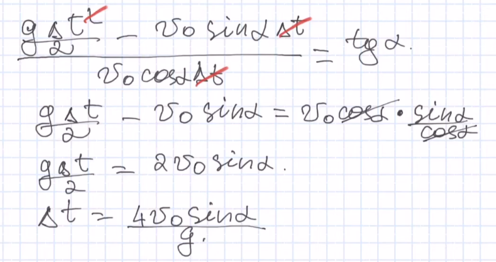 (gΔt²/2 - v₀ sinα Δt) / (v₀ cosα Δt) = tg α.
gΔt/2 - v₀ sinα = v₀ cosα · sinα/cosα
gΔt/2 = 2v₀ sinα.
Δt = 4v₀ sinα/g.